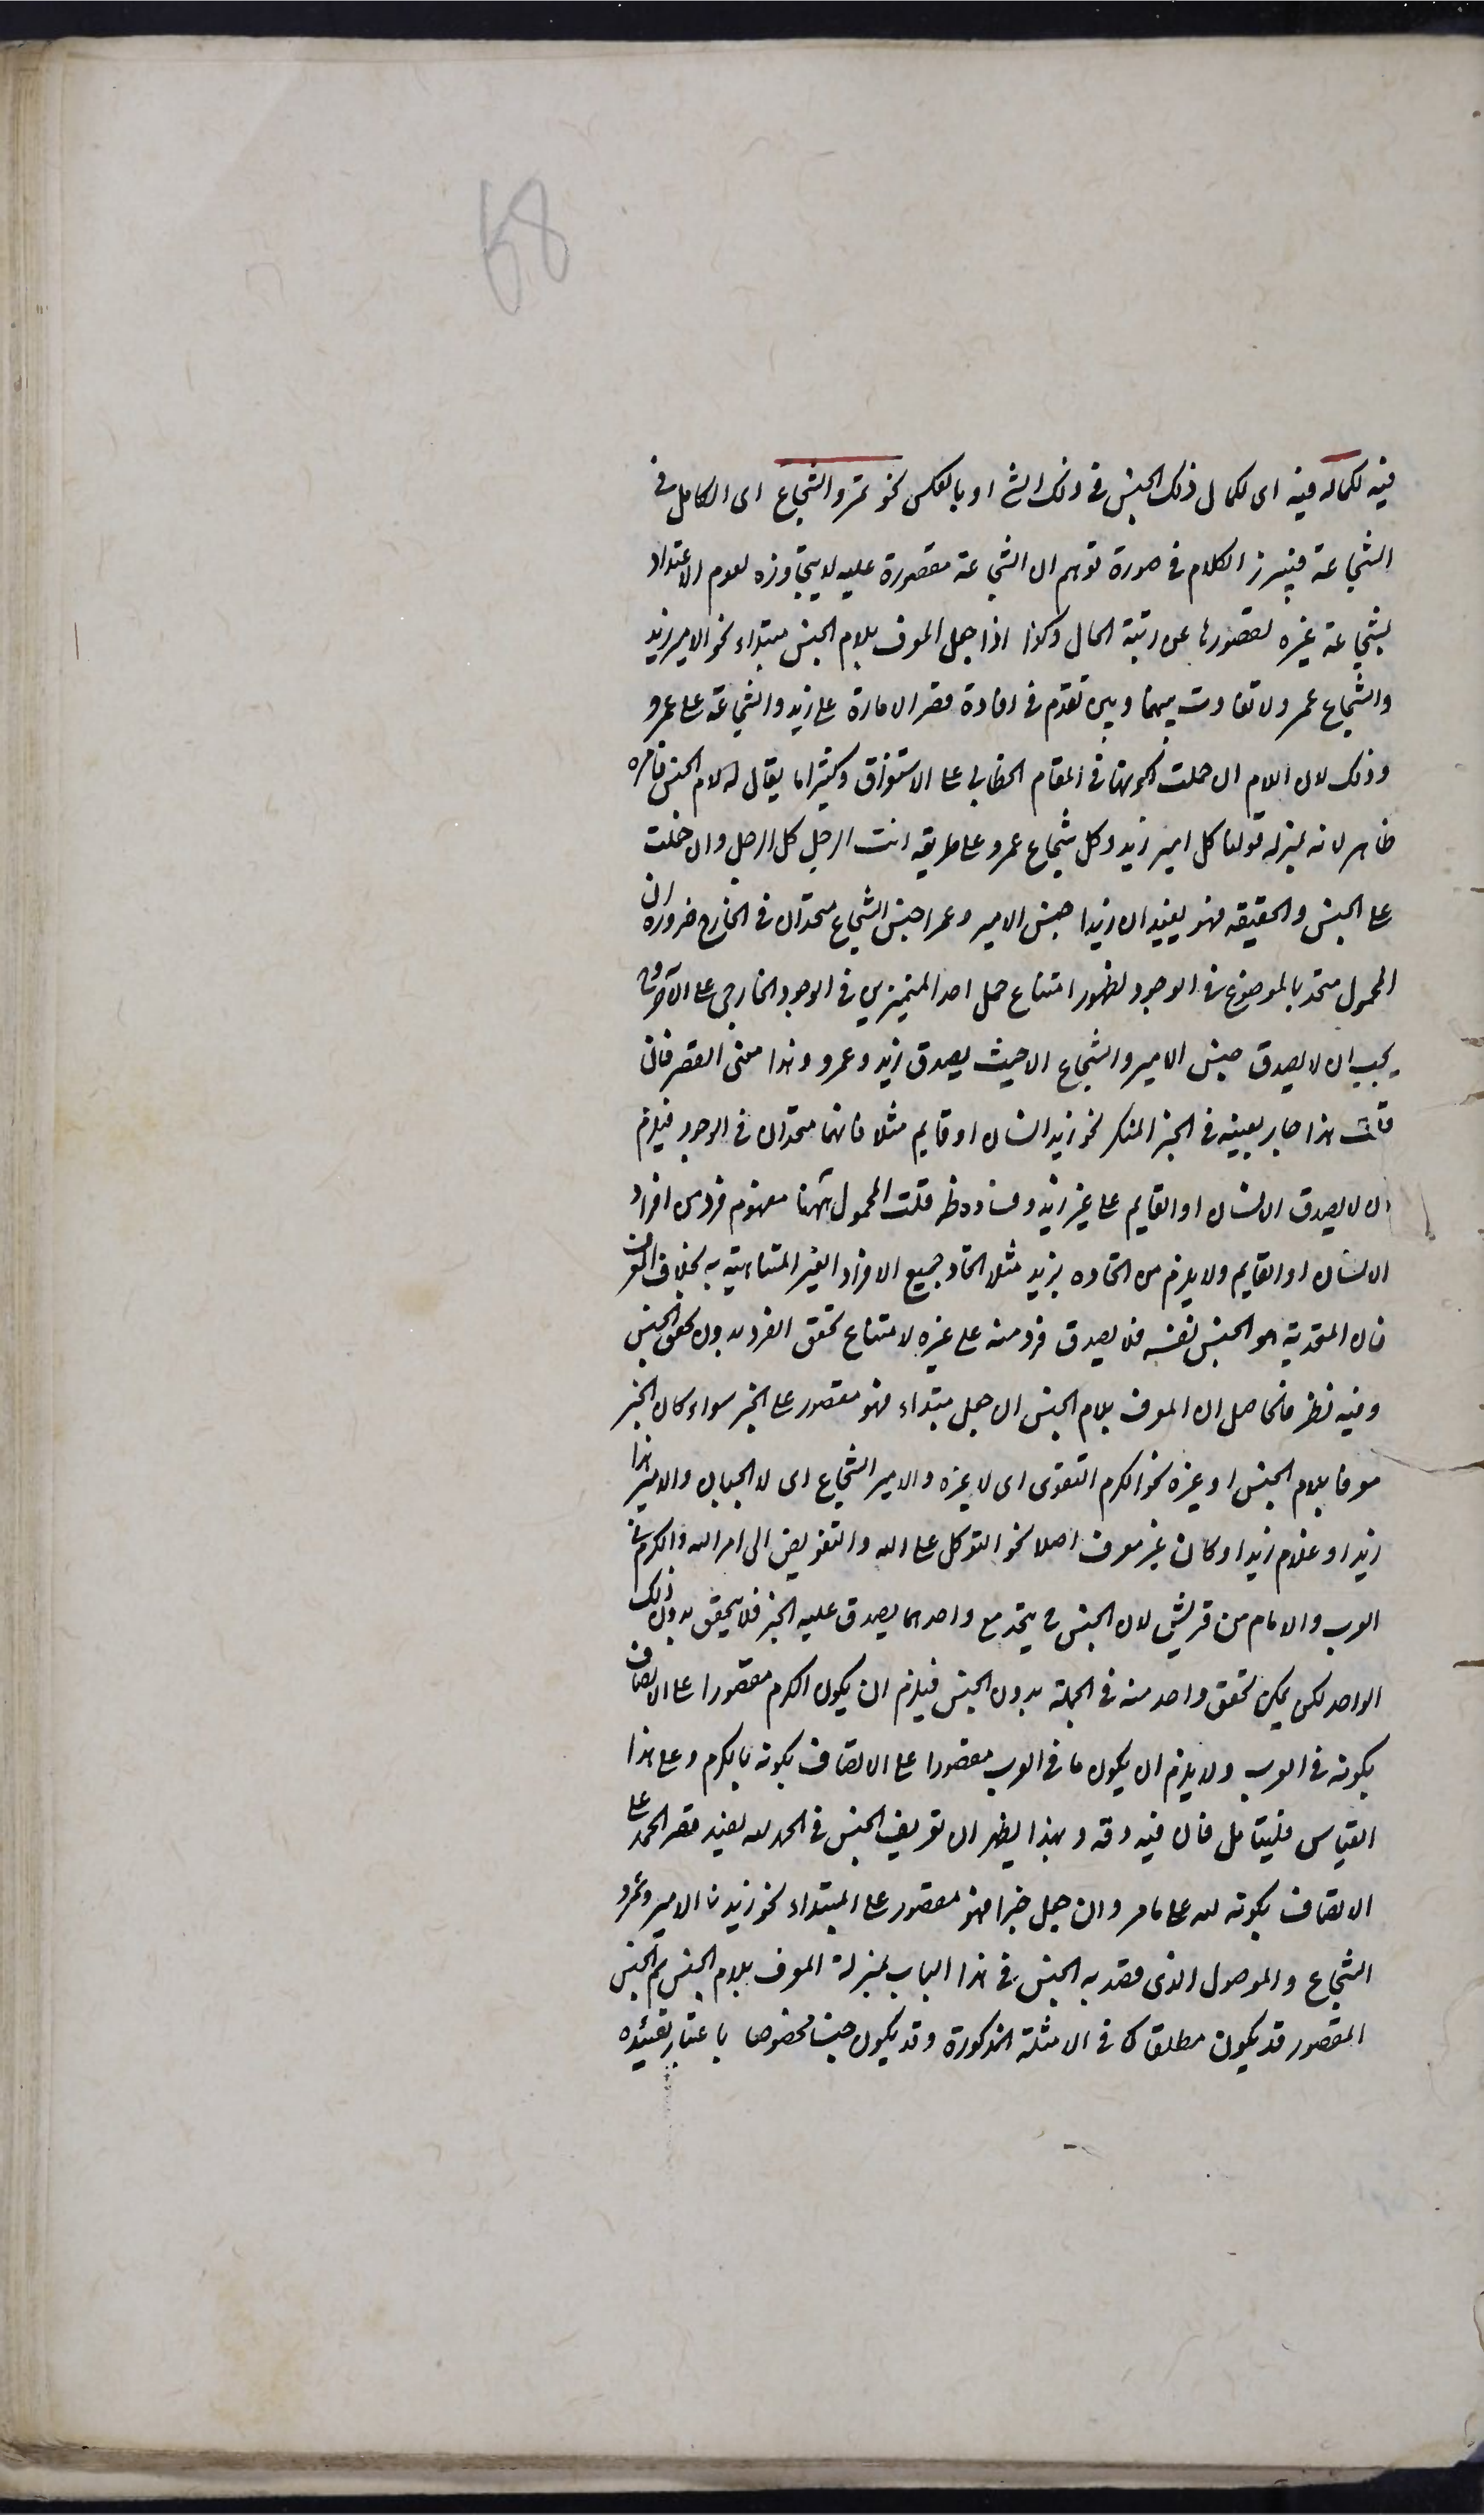 58
فيه لكماله فيه اى لكمال ذلك الجنس فى ذلك الشئ او بالعكس نحو عمرو الشجاع اى الكامل فى
الشجاعة فيبرز الكلام فى صورة توهم ان الشجاعة مقصورة عليه لا يتجاوزه لعدم الاعتداد
بشجاعة غيره لقصورها عن رتبة الكمال وكذا اذا جعل المعرف بلام الجنس مبتداء نحو الامير زيد
والشجاع عمرو لا تفاوت بينهما وبين ما تقدم فى افادة قصر الامارة على زيد والشجاعة على عمرو
وذلك لان اللام ان حملت كونها فى المقام الخطابى على الاستغراق وكثيرا ما يقال له لام الجنس فامره
ظاهر لانه بمنزلة قولنا كل امير زيد وكل شجاع عمرو على طريقة انت الرجل كل الرجل وان حملت
على الجنس والحقيقة فهو يفيد ان زيدا وجنس الامير وعمرا وجنس الشجاع متحدان فى الخارج ضرورة ان
المحمول متحد بالموضوع فى الوجود لظهور امتناع حمل احد المتميزين فى الوجود الخارجى على الآخر وح
يجب ان لا يصدق جنس الامير والشجاع الا حيث يصدق زيد وعمرو وهذا معنى القصر فان
قلت هذا جار بعينه فى الخبر المنكر نحو زيد انسان او قايم مثلا فانهما متحدان فى الوجود فيلزم
ان لا يصدق الانسان او القايم على غير زيد وفساده ظ قلت المحمول ههنا مفهوم فرد من افراد
الانسان او القايم ولا يلزم من اتحاده بزيد مثلا اتحاد جميع الافراد الغير المتناهية به بخلاف المعرف
فان المتحد به هو الجنس نفسه فلا يصدق فرد منه على غيره لامتناع تحقق الفرد بدون تحقق الجنس
وفيه نظر فالحاصل ان المعرف بلام الجنس ان جعل مبتداء فهو مقصور على الخبر سواء كان الخبر
معرفا بلام الجنس او غيره نحو الكرم التقوى اى لا غيره والامير الشجاع اى لا الجبان والامير هذا
زيد او غلام زيد او كان غير معرف اصلا نحو التوكل على الله والتفويض الى امر الله والكرم فى
العرب والامام من قريش لان الجنس ح يتحد مع واحد مما يصدق عليه الخبر فلا يتحقق بدون ذلك
الواحد لكن يمكن تحقق واحد منه فى الجملة بدون الجنس فيلزم ان يكون الكرم مقصورا على الاتصاف
بكونه فى العرب ولا يلزم ان يكون ما فى العرب مقصورا على الاتصاف بكونه بالكرم وعلى هذا
القياس فليتامل فان فيه دقة وبهذا يظهر ان تعريف الجنس فى الحمد لله يفيد قصر الحمد على
الاتصاف بكونه لله على ما مر وان جعل خبرا فهو مقصور على المبتداء نحو زيد الامير وعمرو
الشجاع والموصول الذى قصد به الجنس فى هذا الباب بمنزلة المعرف بلام الجنس ثم الجنس
المقصور قد يكون مطلقا كما فى الامثلة المذكورة وقد يكون جنسا مخصوصا باعتبار تقييده